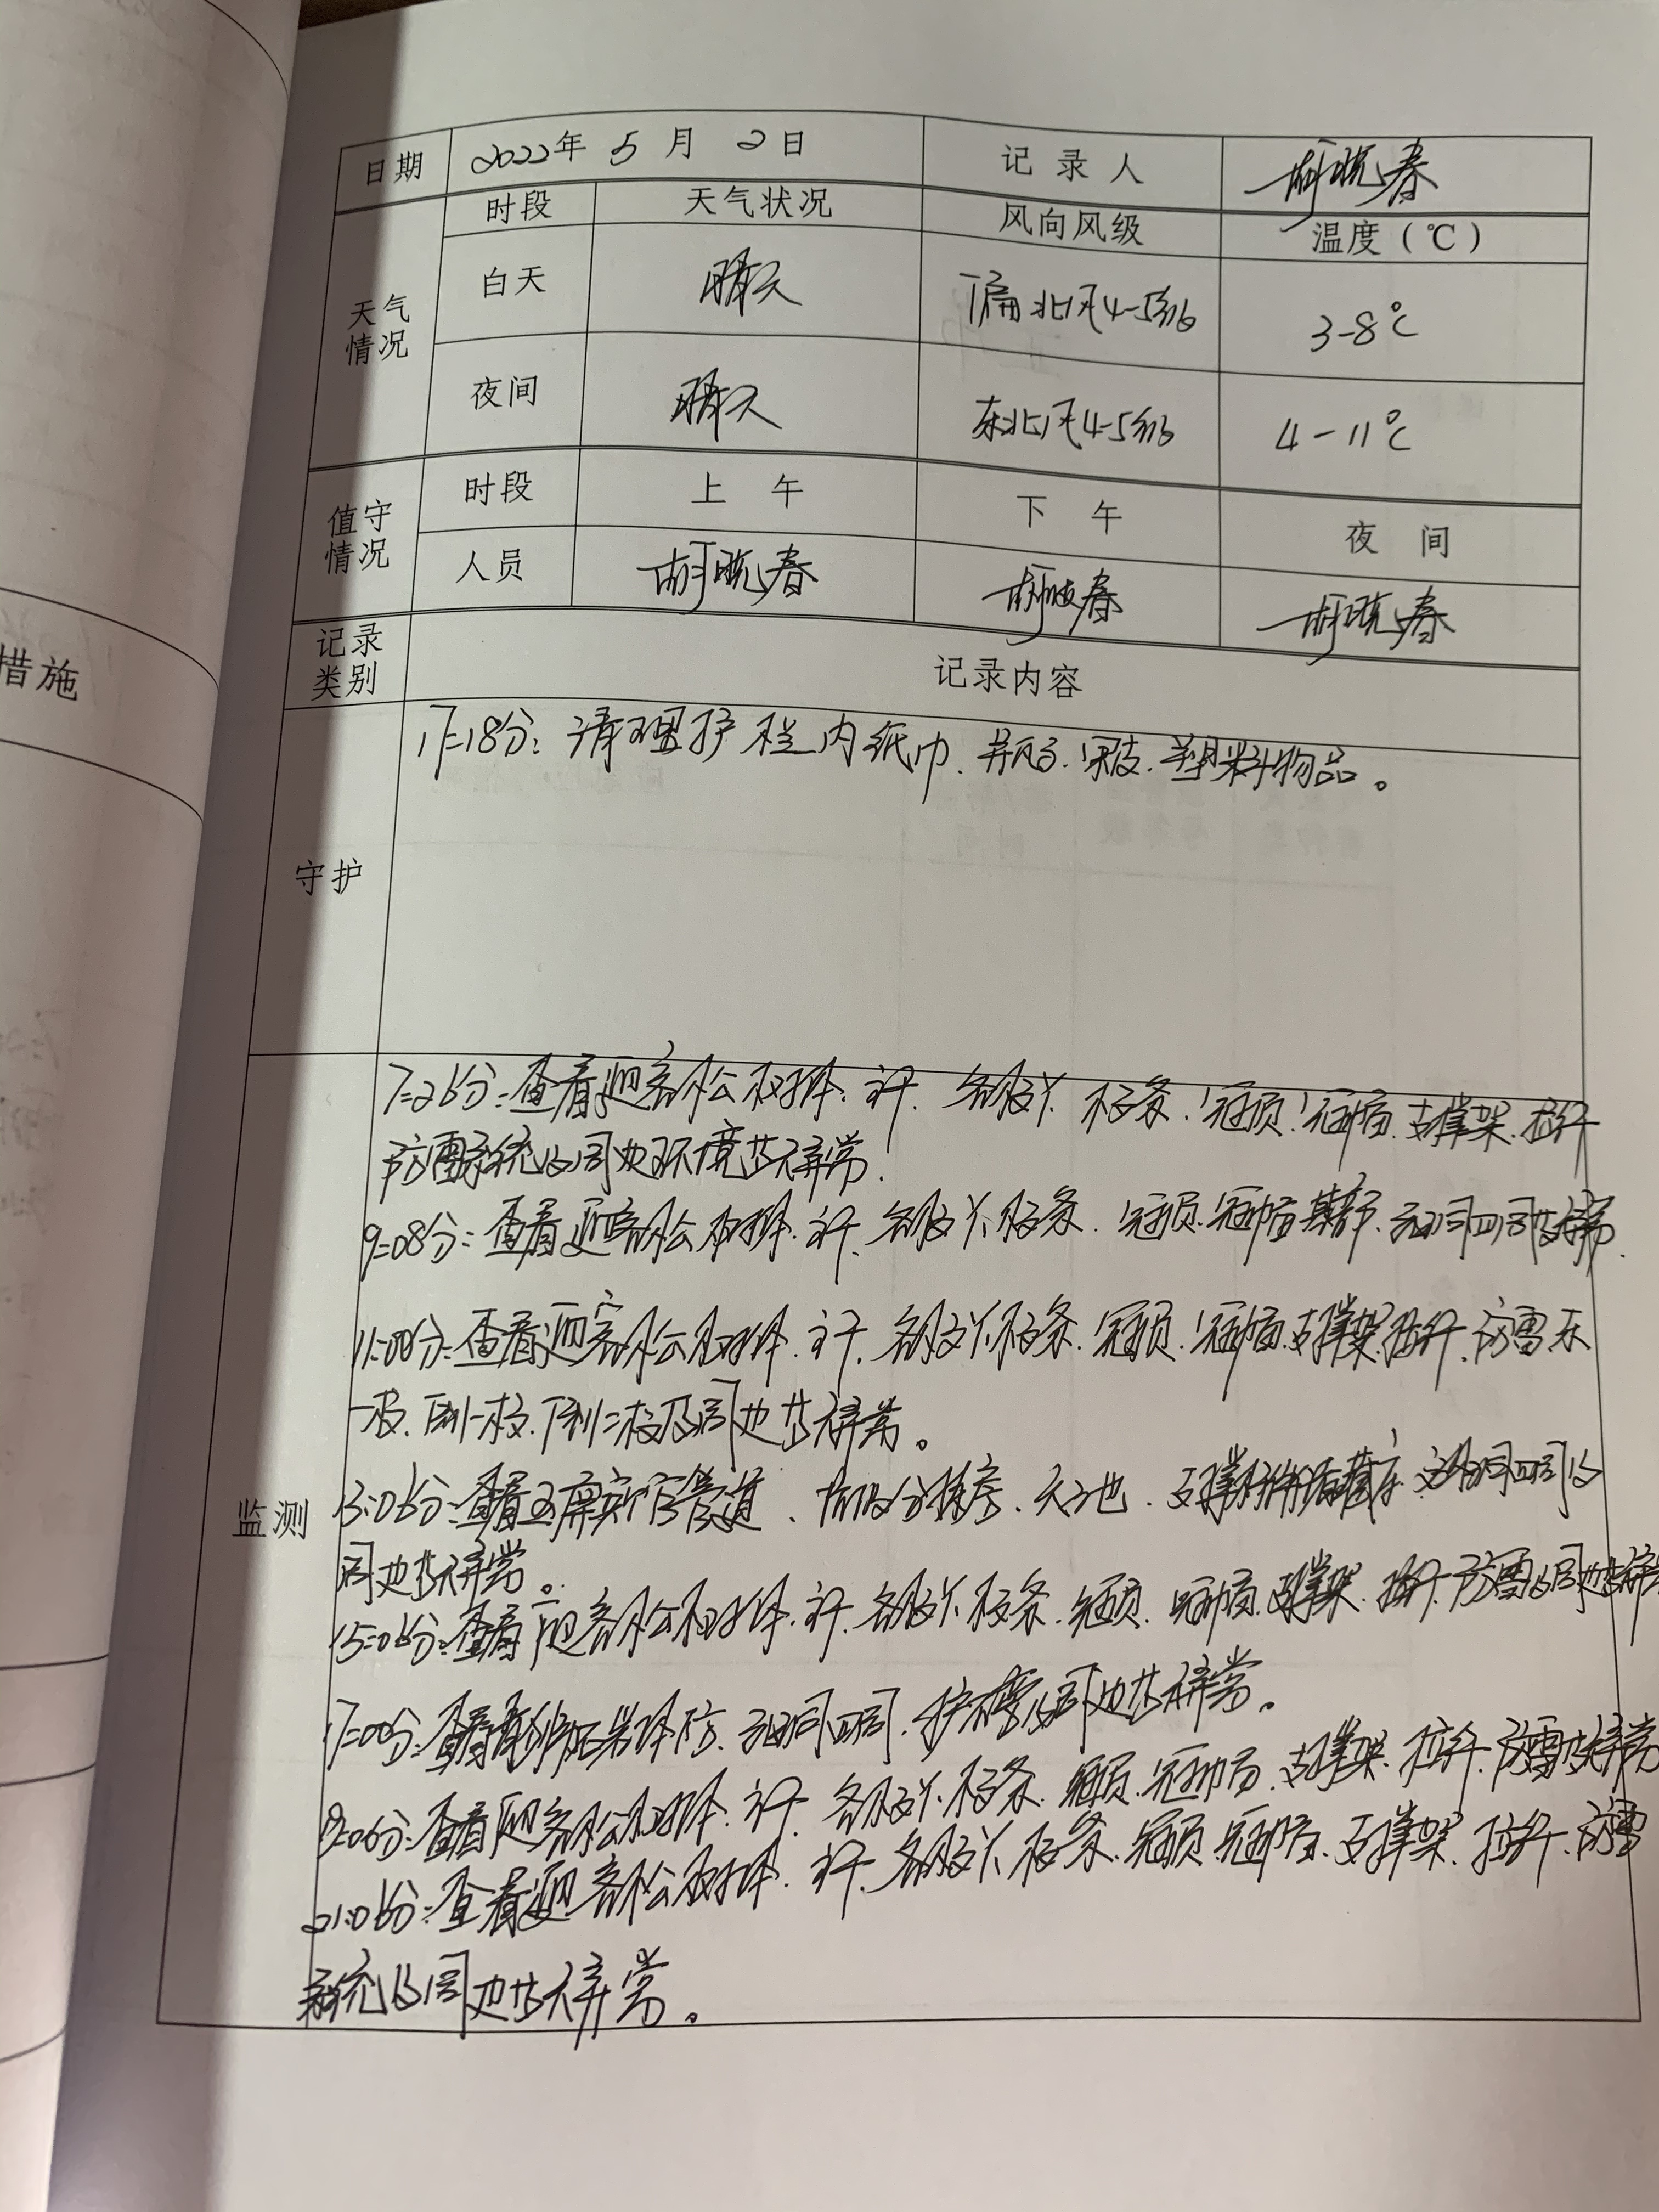 措施
日期 2022年 5 月 2日 记录人 胡晓春
天气情况 时段 天气状况 风向风级 温度（℃）
白天 晴天 偏北风4-5级 3-8℃
夜间 晴天 东北风4-5级 4-11℃
值守情况 时段 上午 下午 夜间
人员 胡晓春 胡晓春 胡晓春
记录类别 记录内容
守护
17=18分：清理护栏内纸巾、瓶子、果皮、塑料物品。
监测
7=26分：查看迎客松树体、主干、各级丫枝条、冠顶、冠幅、支撑架、拉纤
防雷系统及周边环境皆无异常.
9=08分：查看迎客松树体、主干、各级丫枝条、冠顶、冠幅、基部、
11=00分：查看迎客松树体、主干、各级丫枝条、冠顶、冠幅、支撑架、拉纤、防雷
一枝、下侧二枝及周边皆无异常。
13:06分：查看玉屏 管道、天池、支撑
周边皆无异常。
15=06分：查看迎客松树体、主干、各级丫枝条、冠顶、冠幅、支撑架、拉纤、防雷及周边皆无异常
17=00分：查看 及周边皆无异常。
19=06分：查看迎客松树体、主干、各级丫枝条、冠顶、冠幅、支撑架、拉纤、防雷皆无异常
21:06分：查看迎客松树体、主干、各级丫枝条、冠顶、冠幅、支撑架、拉纤、防雷
系统及周边皆无异常。